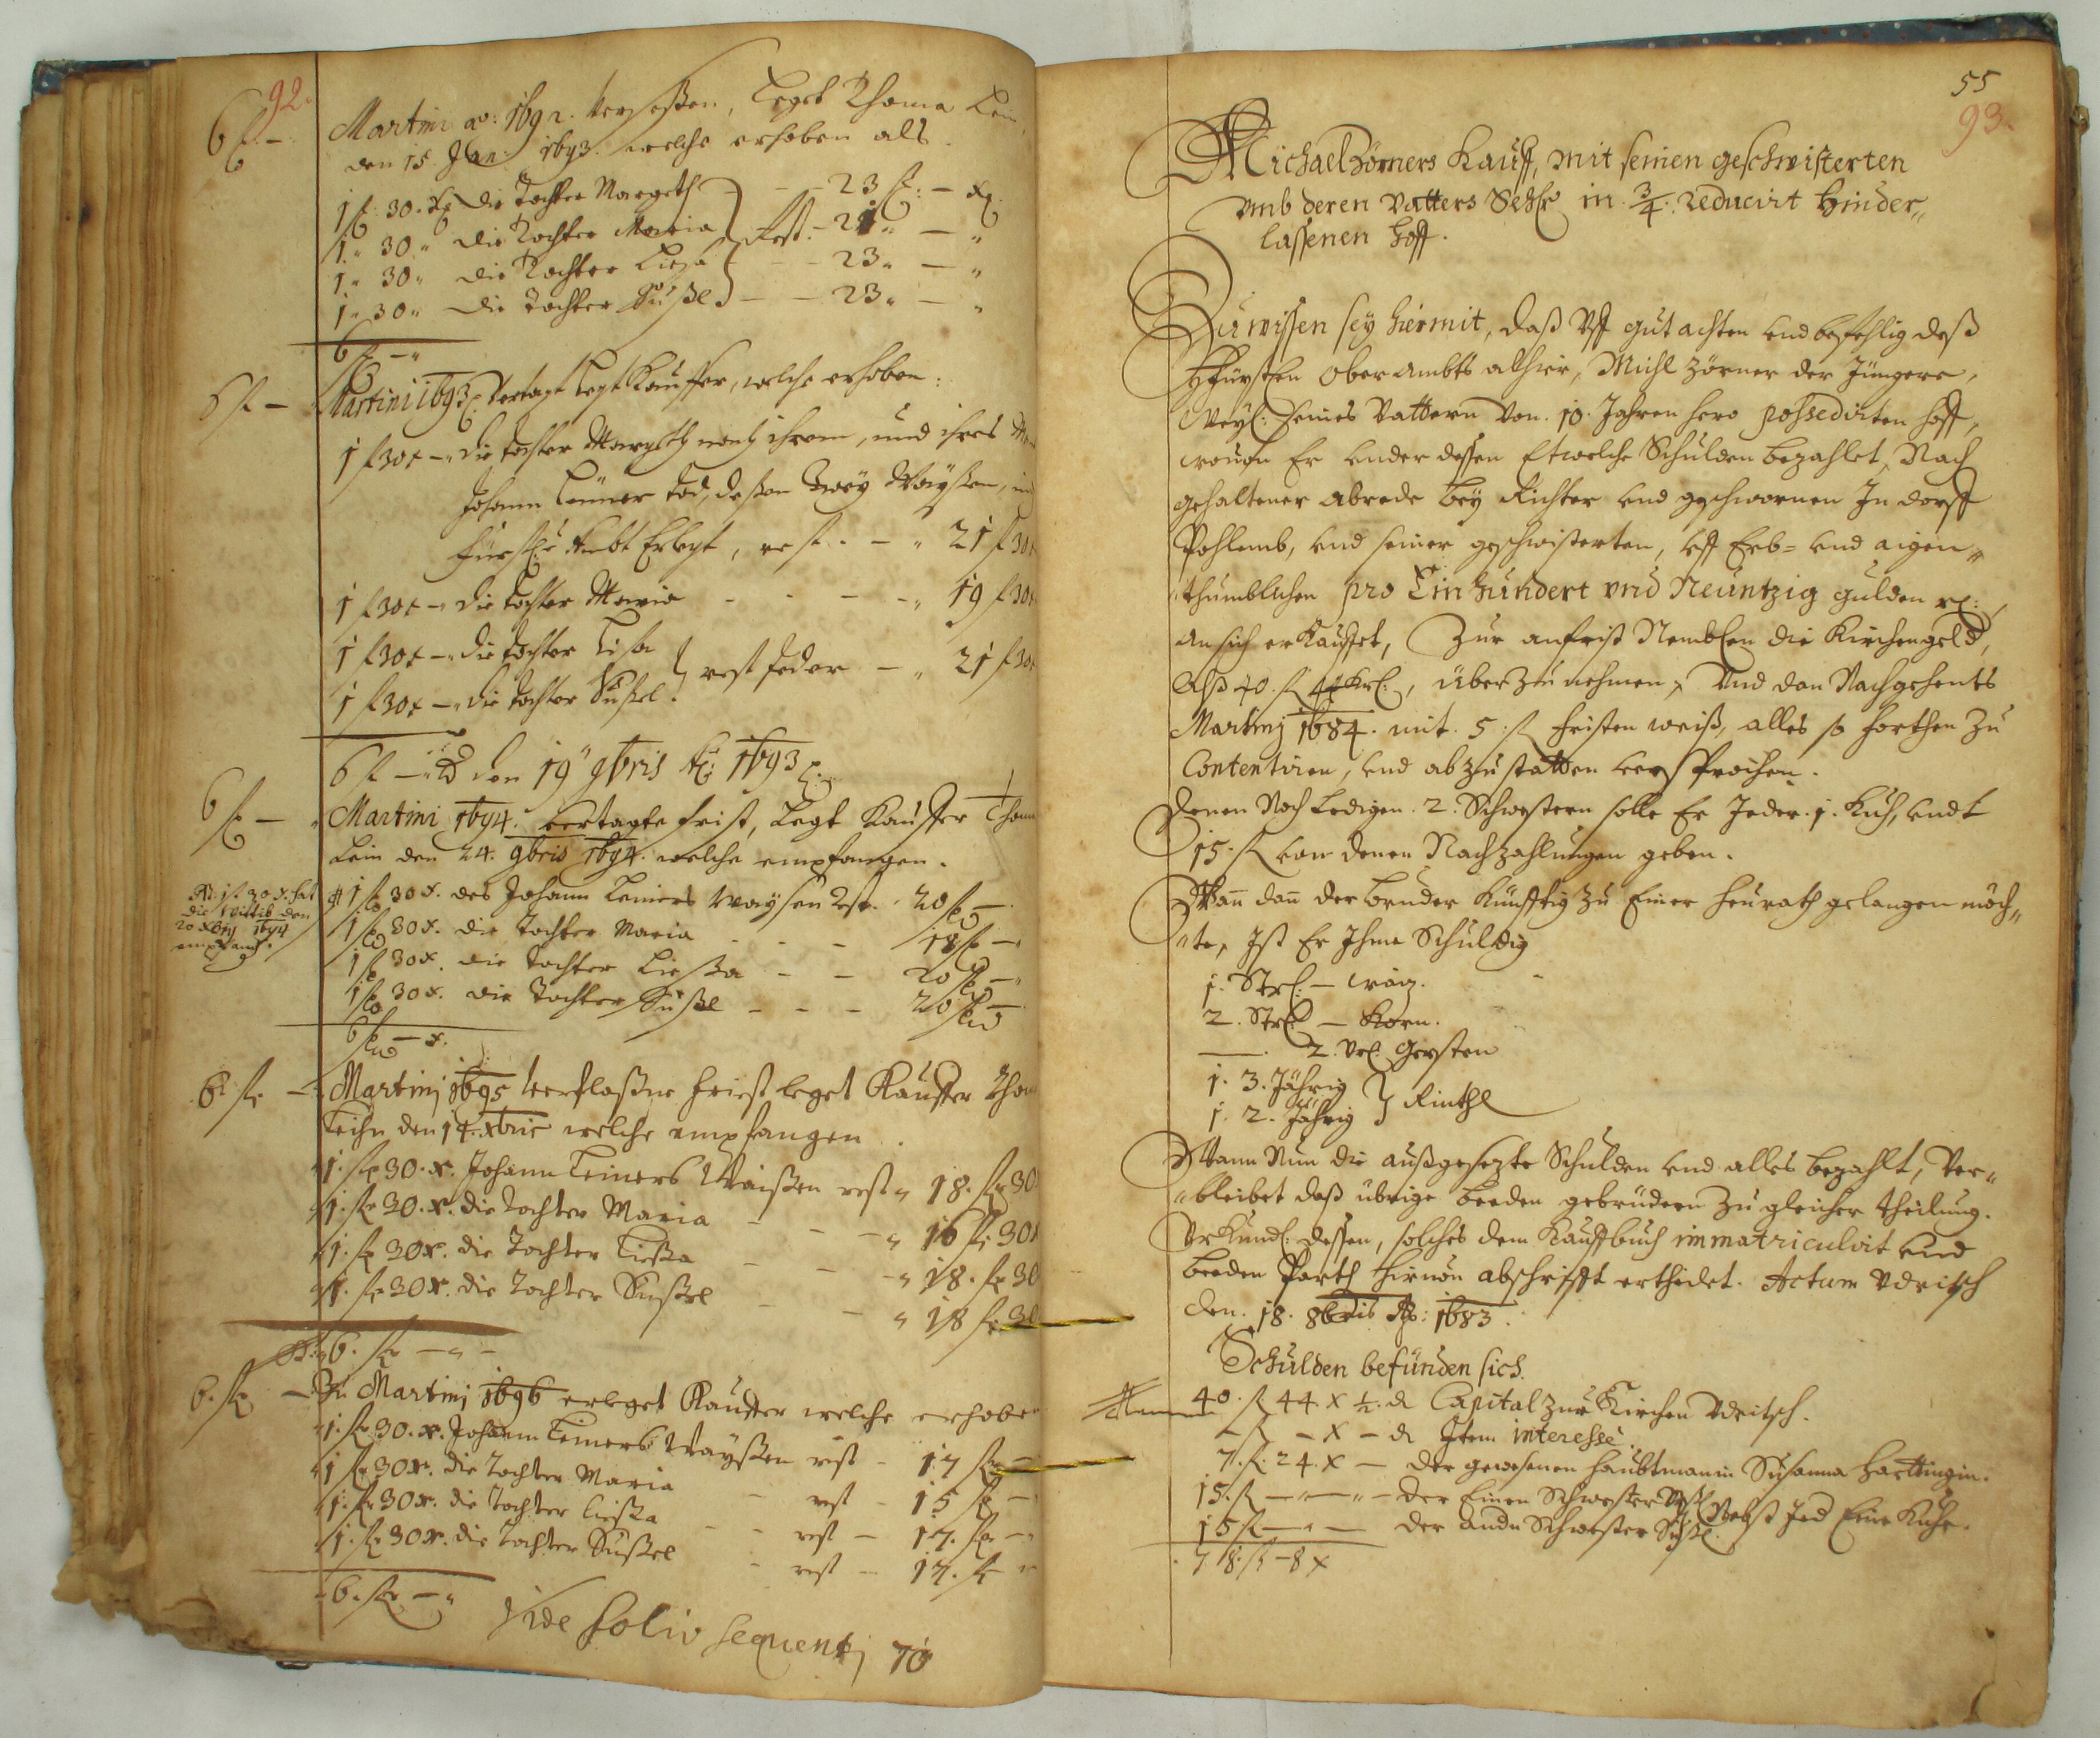 92.
6 f. – Martini ao: 1692. verseßen, Leget Thoma Lein
den 15. Jan: 1693. welche erhoben als
1 f. 30. x die Tochter Margeth – – 23 f. – x
1. 30 " die Tochter Maria Rest. – 21 " – "
1. 30 " die Tochter Liesa – – 23 " – "
1. 30 " die Tochter Sußl – – 23 " – "
6 f – "
6 f – Martini 1693 vertagt legt Kauffer, welche erhoben:
1 f 30 x – die Tochter Margeth nach ihrem, und ihres
Johann Leiners tod, deßen Zwey Waysen,
Fürstl: Ambt Erlegt, rest. – " 21 f 30
1 f 30 x – die Tochter Maria – – – " 19 f 30
1 f 30 x – die Tochter Lisa
rest jeder – " 21 f 30
1 f 30 x – die Tochter Sußel.
6 f – den 19 9bris Ao: 1693
6 f – Martini 1694. vertagte frist, Legt Kauffer Thom
Lein den 24. 9bris 1694. welche empfangen.
1 f 30 x. des Johann Leiners Waysen Rest. 20 f –
die Wittib den
1694
empfangen.
1 f 30 x. die Tochter Maria – – – 18 f –
1 f 30 x. die Tochter Ließa – – 20 f –
1 f 30 x. die Tochter Sußl – – – 20 f –
6 f – x.
6. f. – Martinj 1695 verfloßne frist leget Kauffer Thom
Leihn den 14. xbris welche empfangen
1. f. 30. x. Johann Leiners Waißen rest " 18. f 30
1. f. 30. x. die Tochter Maria – – " 16 f. 30
1. f. 30 x. die Tochter Ließa – – " 18. f. 30
1. f. 30 x. die Tochter Sußel – – " 18 f. 30
6. f. – " –
6. f. – Zu Martinj 1696 erleget Kauffer welche erhoben
1. f. 30. x. Johann Leiners Wayßen rest – 17 f. –
1 f. 30 x. die Tochter Maria – rest – 15 f –
1. f. 30 x. die Tochter Ließa – – rest – 17. f. –
1. f. 30 x. die Tochter Sußel – rest – 17. f. –
6. f. – "
Vide folio sequentj 70
55
93.
Michael Zörners Kauff, mit seinen geschwisterten
umb deren Vatters Seel: in 3/4. reducirt Hinder„
lassenen hoff.
Zu wissen sey hiermit, daß Uff gut achten und befehlig deß
Hfürstlen Ober Ambts alhier, Michl Zörner der Jüngere,
Weyl: seines Vattern Von. 10. Jahren hero possedirten hoff,
wouon Er under dessen Etwelche Schulden bezahlet, Nach
gehaltener Abrede bey Richter und geschwornen In dorff
Pohlemb, und seiner geschwisterten, uff Erb= und aigen„
„thumblichen pro Ein hundert und Neuntzig gulden rh:,
an sich erkauffet, Zur anfrist Nemblen die Kirchengeld,
Alß 40. f. 44 Krl:, überzunehmen, Und dan Nachgehents
Martinj 1684. mit. 5. f. fristen weiß, alles so forthen zu
Contentiren, und abzustatten versprochen.
Denen Noch Ledigen. 2. Schwestern solle Er Jeder. 1. Kuh, undt
15. f. von denen Nachzahlungen geben.
Wan dan der bruder künfftig zu Einer heurath gelangen möch„
„te, Ist Er Ihme Schuldig
1. Strl: – waiz.
2. Strl – Korn.
—. 2. Vrl: Gersten
1. 3. Jährig
Rindtl
1. 2. Jährig
Wann Nun die außgesezte Schulden und alles bezahlt, Ver„
„bleibet daß übrige beeden gebrüdern zu gleicher theilung.
Urkundl: dessen, solches dem Kauffbuch immatriculirt und
beeden Parth hieruon abschrifft ertheilet. Actum Udritsch
den. 18. 8bris Ao: 1683.
Schulden befunden sich.
40. f. 44. x ½. d Capital zur Kirchen Udritsch.
– f. – x – d Item interesse.
7. f. 24. x – der gewesenen Haubtmanin Susanna Harttingin.
15. f. – " – " – der Einen Schwester
Nebst Jed Eine Kuhe.
15 f. – " – der andn Schwester
78. f. – 8 x